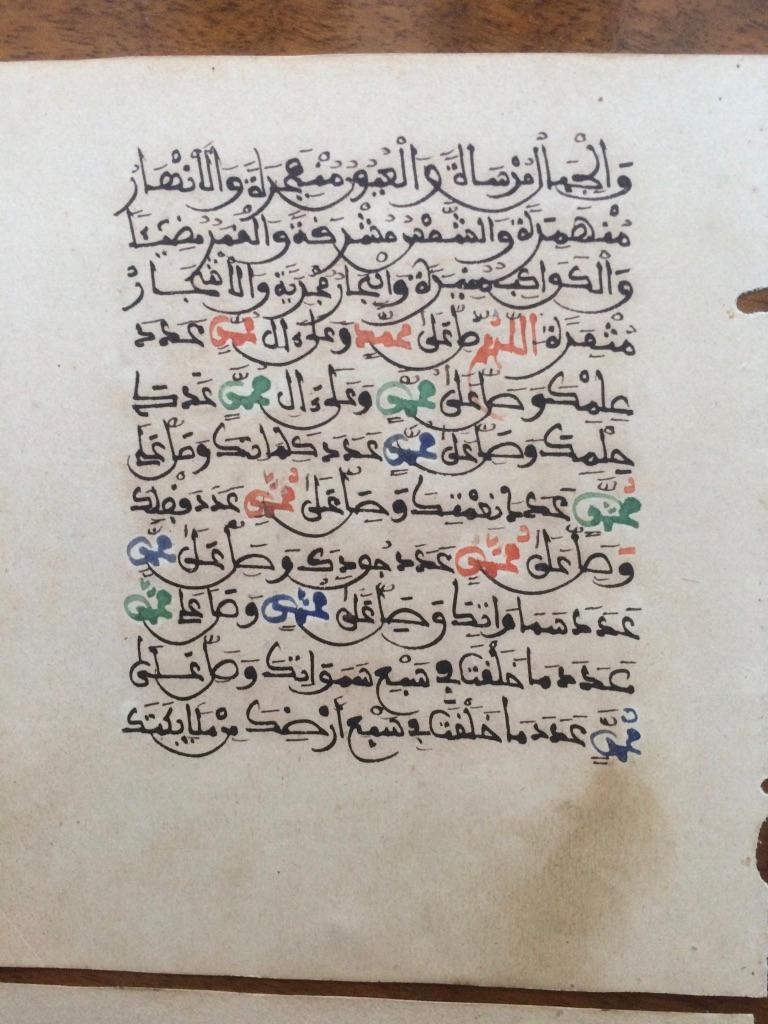 وَالْجِبَالُ مُرْسَاةً وَالْعُيُونُ مُنْفَجِرَةً وَالْأَنْهَارُ
مُنْهَمِرَةً وَالشَّمْسُ مُشْرِقَةً وَالْقَمَرُ مُضِيئًا
وَالْكَوَاكِبُ مُنِيرَةً وَالْبِحَارُ مُجْرِيَةً وَالْأَشْجَارُ
مُثْمِرَةً اللَّهُمَّ صَلِّ عَلَى مُحَمَّدٍ وَعَلَى ءَالِ مُحَمَّدٍ عَدَدَ
عِلْمِكَ وَصَلِّ عَلَى مُحَمَّدٍ وَعَلَى ءَالِ مُحَمَّدٍ عَدَدَ
حِلْمِكَ وَصَلِّ عَلَى مُحَمَّدٍ عَدَدَ كَلِمَاتِكَ وَصَلِّ عَلَى
مُحَمَّدٍ عَدَدَ نِعْمَتِكَ وَصَلِّ عَلَى مُحَمَّدٍ عَدَدَ فَضْلِكَ
وَصَلِّ عَلَى مُحَمَّدٍ عَدَدَ جُودِكَ وَصَلِّ عَلَى مُحَمَّدٍ
عَدَدَ سَمَاوَاتِكَ وَصَلِّ عَلَى مُحَمَّدٍ وَصَلِّ عَلَى مُحَمَّدٍ
عَدَدَ مَا خَلَقْتَ فِي سَبْعِ سَمَوَاتِكَ وَصَلِّ عَلَى
مُحَمَّدٍ عَدَدَ مَا خَلَقْتَ فِي سَبْعِ أَرْضِكَ مِنْ مَلَائِكَتِكَ